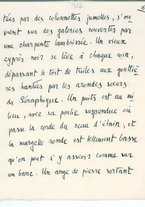 312
tées par des colonnettes jumelles, s'ou
vrent sur des galeries couvertes par
une charpente lambrissée. Un vieux
cyprès noir se lève à chaque coin,
dépassant le toit de tuiles aux gouttiè
res hantées par les arondes sœurs
du Séraphique. Un puits est au mi
lieu, avec sa poulie suspendue où
passe la corde du seau d'étain; et
la margelle ronde est tellement basse
qu'on peut s'y asseoir comme sur
un banc. Un ange de pierre sortant